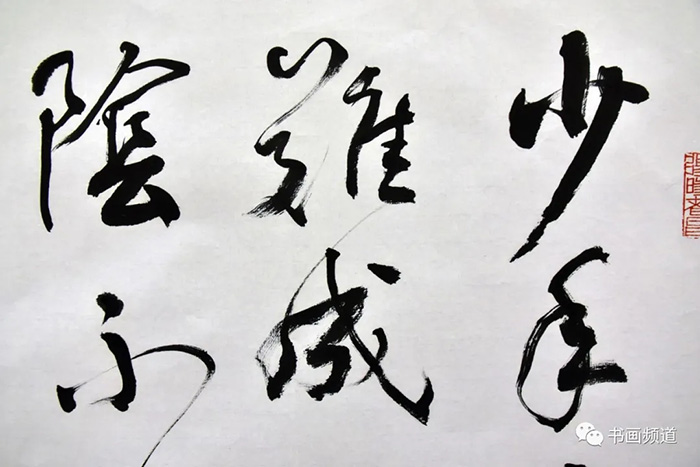 少年
難成
陰不
书画频道